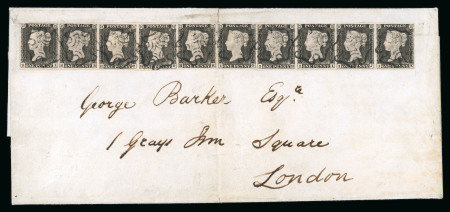 POSTAGE POSTAGE POSTAGE POSTAGE POSTAGE POSTAGE POSTAGE POSTAGE POSTAGE POSTAGE
ONE PENNY ONE PENNY ONE PENNY ONE PENNY ONE PENNY ONE PENNY ONE PENNY ONE PENNY ONE PENNY ONE PENNY
George Barker Esqe
1 Grays Inn Square
London